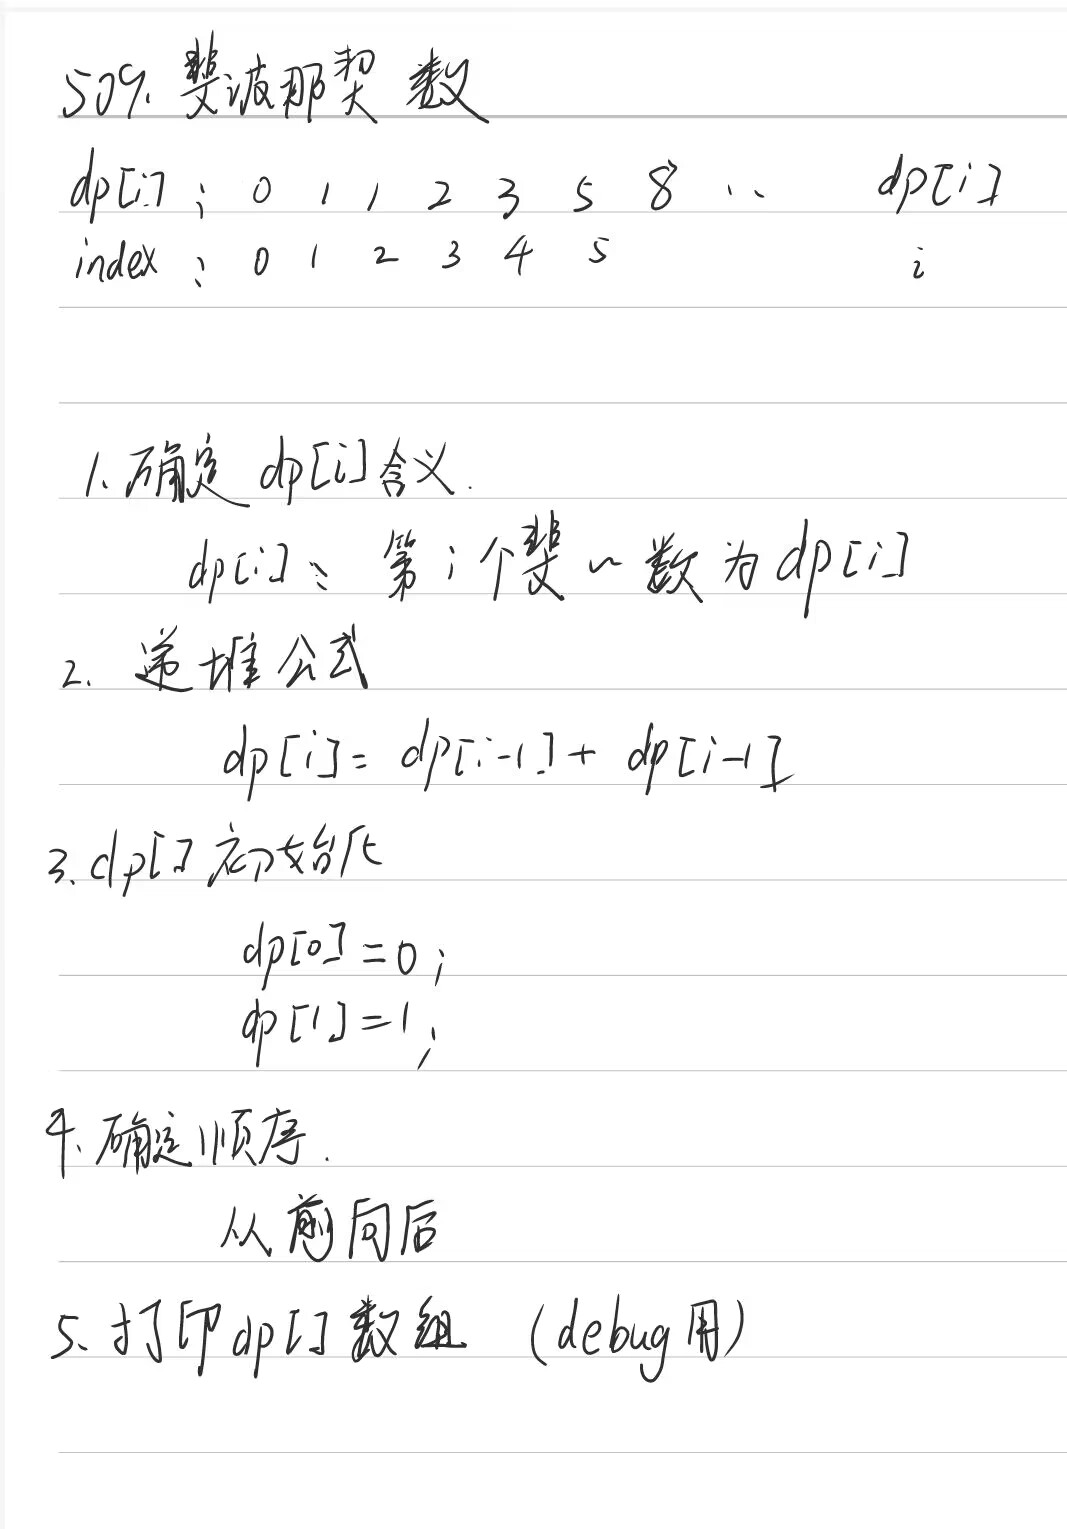 509. 斐波那契数
dp[i]: 0 1 1 2 3 5 8 .. dp[i]
index: 0 1 2 3 4 5 i
1. 确定 dp[i]含义.
dp[i]: 第i个斐~数为dp[i]
2. 递堆公式
dp[i]= dp[i-1]+ dp[i-1]
3. dp[]初始化
dp[0]=0;
dp[1]=1;
4. 确定顺序.
从前向后
5. 打印dp[]数组 (debug用)